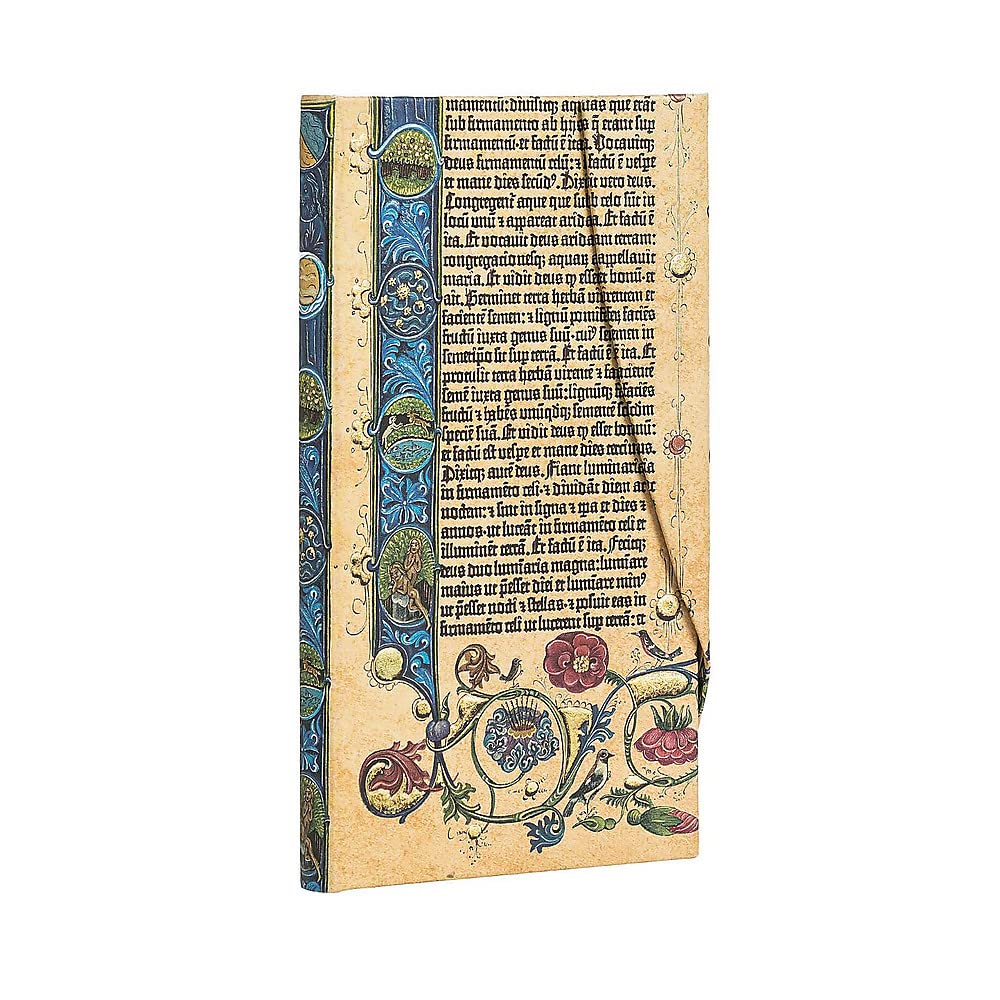 mamentū: divisitq; aquas que erāt
sub firmamento ab hijs q̄ erant sup
firmamentū: et factū ē ita. Vocavitq;
deus firmamentū celū: ⁊ factū ē vespe
et mane dies secūdꝰ. Dixit vero deus.
Congregent̄ aque que sub celo sūt in
locū unū ⁊ appareat arida. Et factū ē
ita. Et vocavit deus aridam terram:
congregacionesq; aquaꝝ appellavit
maria. Et vidit deus ꝙ esset bonū. et
ait. Germinet terra herbā virentem et
facientē semen: ⁊ lignū pomiferū faciēs
fructū iuxta genus suū. cuiꝰ semen in
semetipō sit sup terrā. Et factū ē ita. Et
protulit terra herbā virentē ⁊ facientē
semē iuxta genus suū: lignūq; faciēs
fructū ⁊ habēs unūqdq; sementē scdm
speciē suā. Et vidit deus ꝙ esset bonum:
et factū est vespe et mane dies tercius.
Dixitq; autē deus. Fiant luminaria
in firmamēto celi. ⁊ dividāt diem ac
noctem: ⁊ sint in signa ⁊ tp̄a et dies ⁊
annos. ut luceāt in firmamēto celi et
illuminēt terrā. Et factū ē ita. Fecitq;
deus duo lumīaria magna: lumīare
maius ut p̄esset diei et lumīare minꝰ
ut p̄esset nocti ⁊ stellas. ⁊ posuit eas in
firmamēto celi ut lucerent sup terrā: et